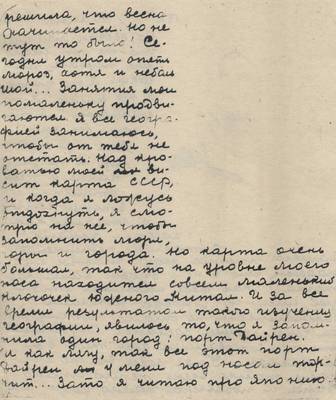 решила, что весна
начинается. Но не
тут то было! Се-
годня утром опять
мороз, хотя и неболь
шой... Занятия мои
помаленьку продви-
гаются. Я все геогра-
фией занимаюсь,
чтобы от тебя не
отстать. Над кро-
ватью моей ви-
сит карта СССР,
и когда я ложусь
отдохнуть, я смо-
трю на нее, чтобы
запомнить моря,
горы и города. Но карта очень
большая, так что на уровне моего
носа находится совсем маленький
клочочек южного Китая. И за все
время результатом такого изучения
географии, явилось то, что я запом-
нила один город: порт Дайрен.
И как лягу, так все этот порт
Дайрен у меня под носом тор-
чит... Зато я читаю про Японию.